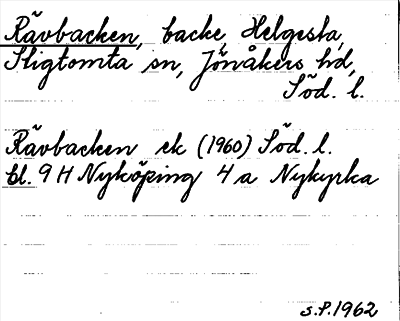 Rävbacken, backe, Helgesta,
Stigtomta sn, Jönåkers hd,
Söd. l.
Rävbacken ek (1960) Söd. l.
bl. 9 H Nyköping 4 a Nykyrka
S.P. 1962